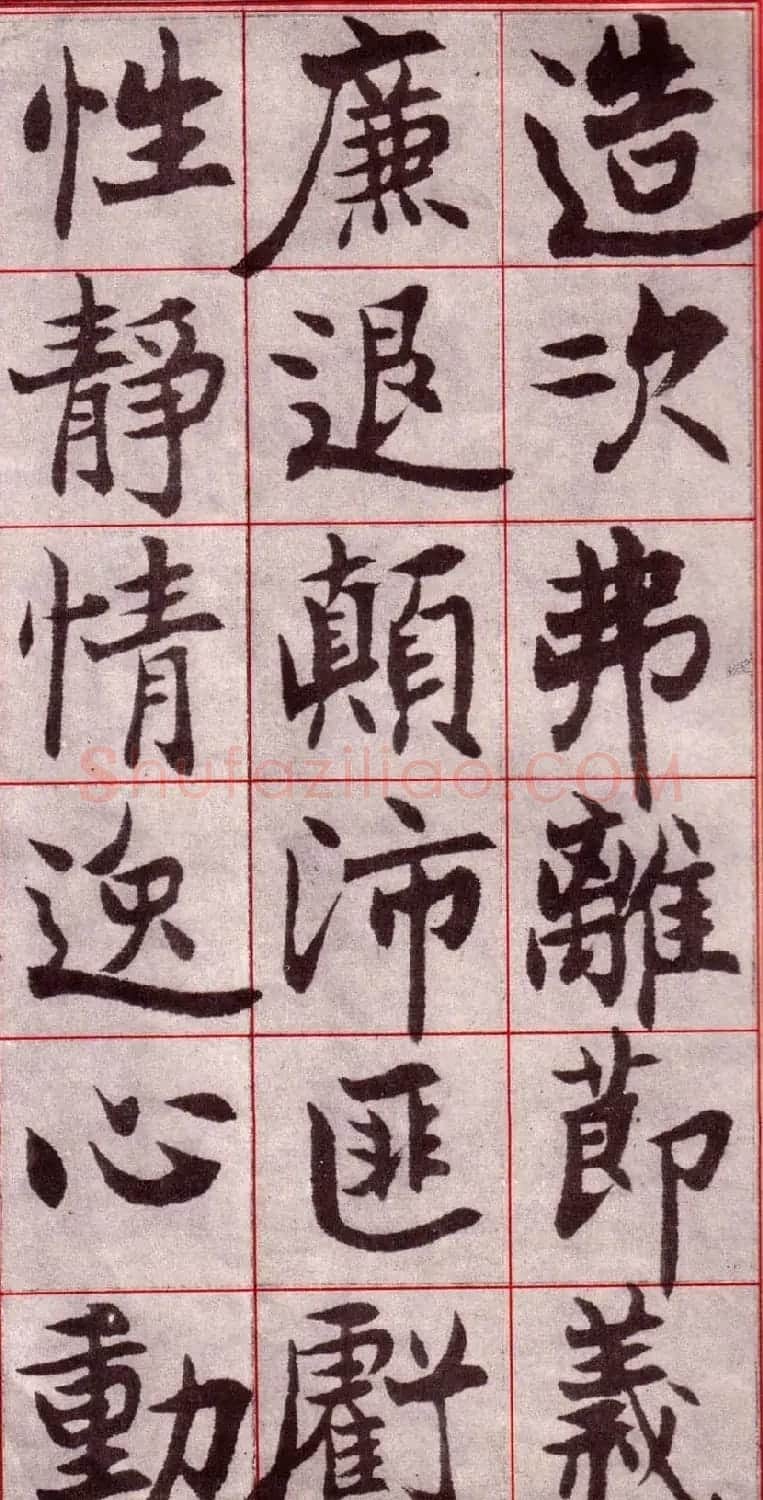 造次弗離節義
廉退顛沛匪虧
性靜情逸心動
Shufaziliao.COM